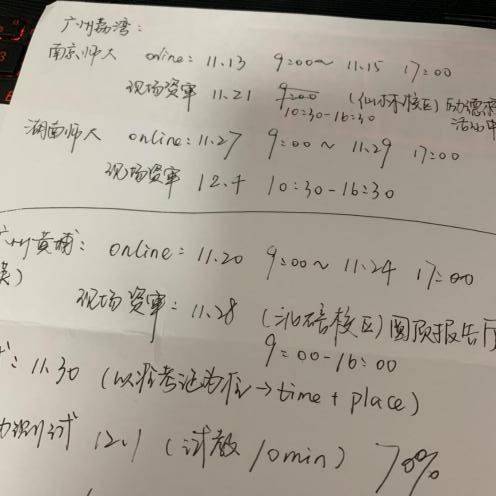 广州荔湾:
南京师大 online: 11.13 9:00~ 11.15 17:00
现场资审 11.21 9:00 (仙林校区)
10:30-16:30
湖南师大 online: 11.27 9:00 ~ 11.29 17:00
现场资审 12.4 10:30-16:30
广州黄埔: online: 11.20 9:00~ 11.24 17:00
现场资审: 11.28 (北碚校区) 报告厅
9:00-16:00
11.30 (以准考证为准→time + place)
试 12.1 (试教 10min) 70%